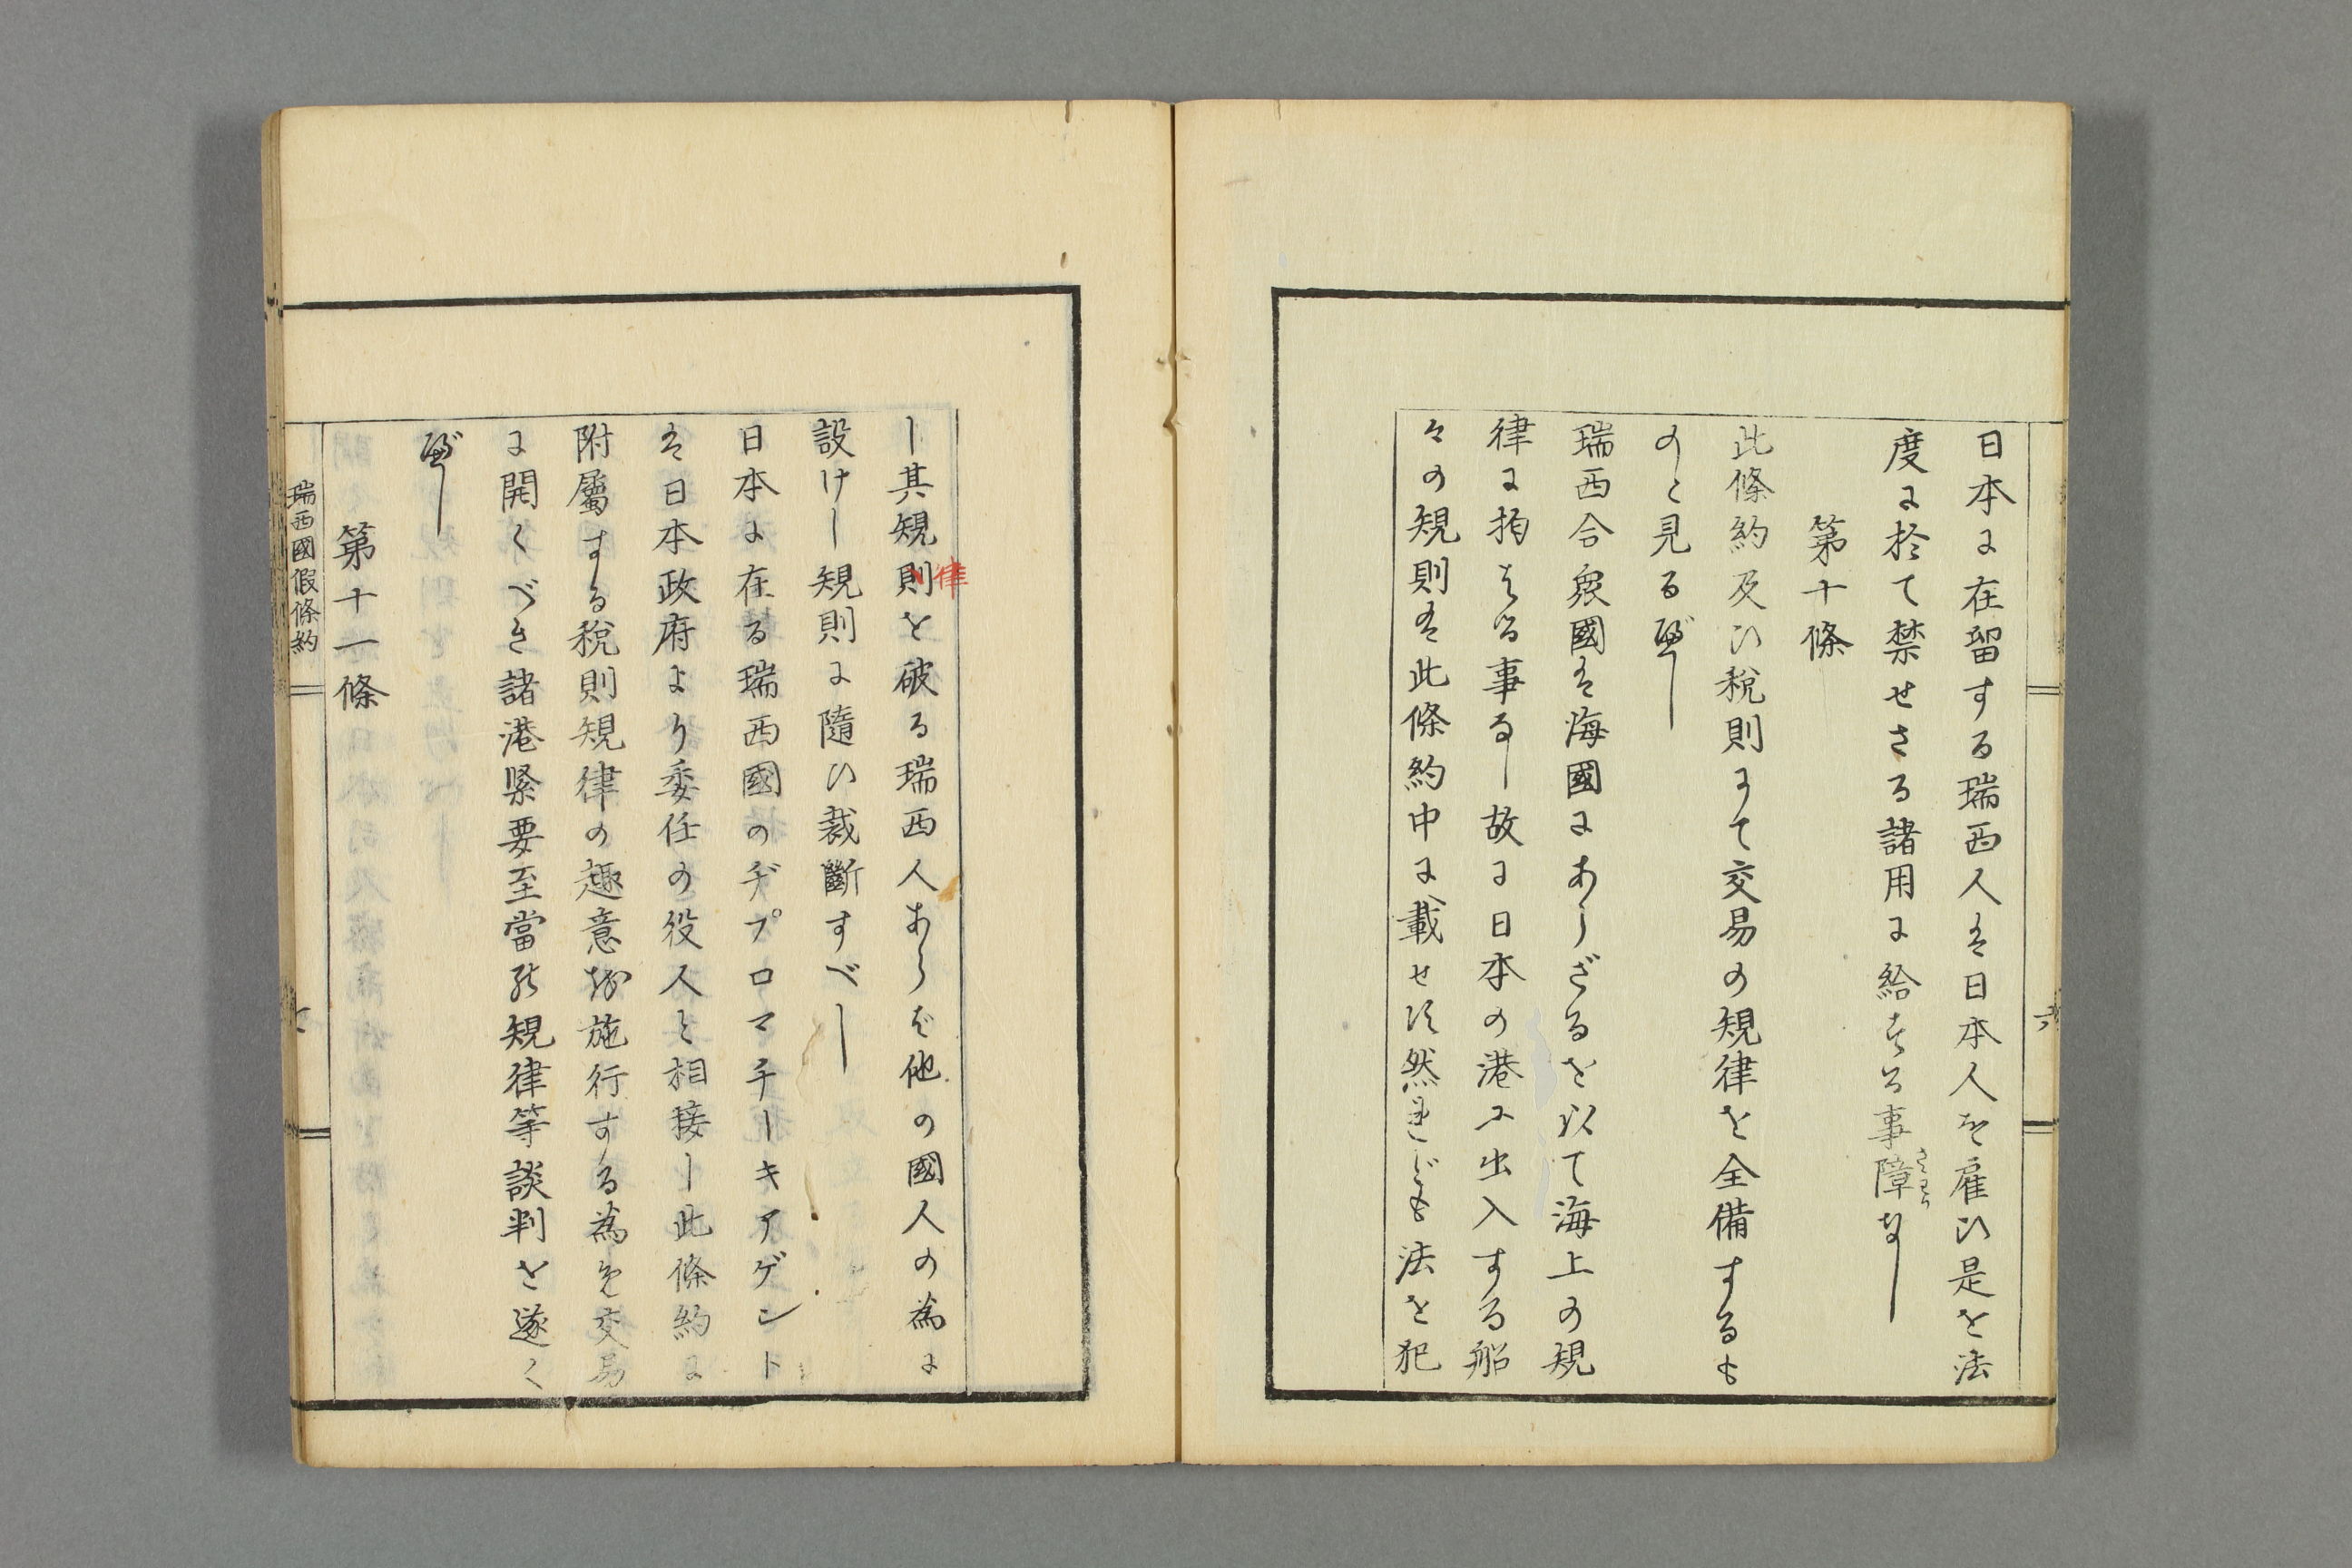 日本に在留する瑞西人は日本人を雇ひ是を法
度に於て禁せさる諸用に給する事障なし
さはり
第十條
此條約及ひ税則にて交易の規律を全備するも
のと見るべし
瑞西合衆國は海國にあらざるを以て海上の規
律に拘はる事なし故に日本の港に出入する船
々の規則は此條約中に載せす然れども法を犯
六
し其規則を破る瑞西人あらば他の國人の為に
律
設けし規則に隨ひ裁斷すべし
日本に在る瑞西國のヂプロマチーキアゲント
は日本政府より委任の役人と相接し此條約に
附屬する税則規律の趣意を施行する為め交易
に開くべき諸港緊要至當の規律等談判を遂く
べし
第十一條
瑞西國假條約
七